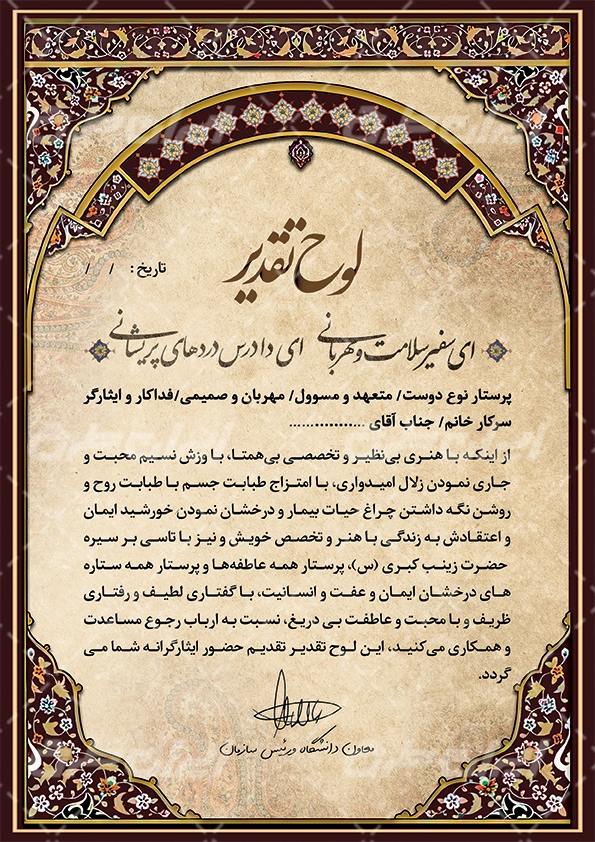 لوح تقدیر
تاریخ:   /   /
ای سفیر سلامت و مهربانی   ای دادرس دردهای پریشانی
پرستار نوع دوست/ متعهد و مسوول/ مهربان و صمیمی/فداکار و ایثارگر
سرکار خانم/ جناب آقای ......................
از اینکه با هنری بی‌نظیر و تخصصی بی‌همتا، با وزش نسیم محبت و
جاری نمودن زلال امیدواری، با امتزاج طبابت جسم با طبابت روح و
روشن نگه داشتن چراغ حیات بیمار و درخشان نمودن خورشید ایمان
و اعتقادش به زندگی با هنر و تخصص خویش و نیز با تاسی بر سیره
حضرت زینب کبری (س)، پرستار همه عاطفه‌ها و پرستار همه ستاره
های درخشان ایمان و عفت و انسانیت، با گفتاری لطیف و رفتاری
ظریف و با محبت و عاطفت بی دریغ، نسبت به ارباب رجوع مساعدت
و همکاری می‌کنید، این لوح تقدیر تقدیم حضور ایثارگرانه شما می
گردد.
معاون دانشگاه و رئیس سازمان